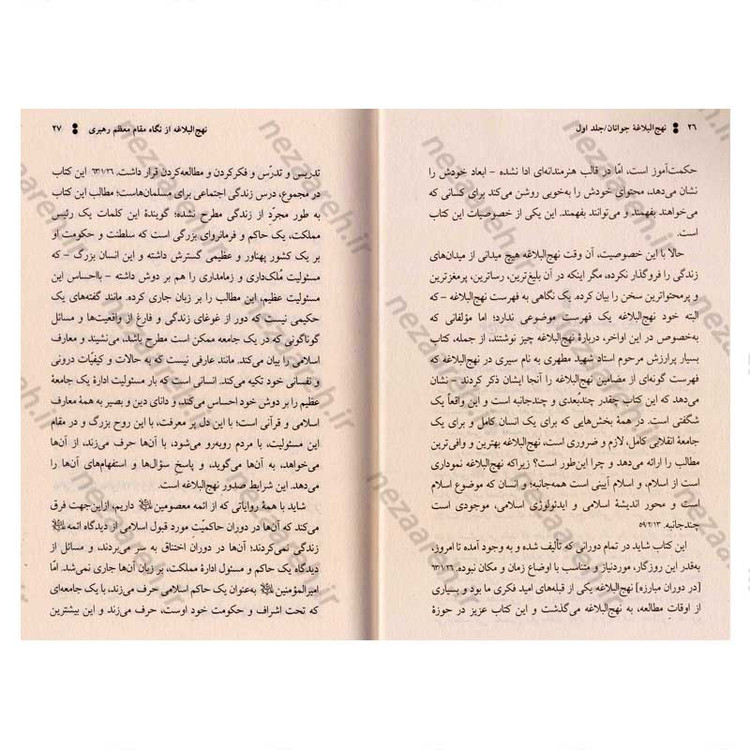 ۲۶ نهج‌البلاغهٔ جوانان/جلد اول
حکمت‌آموز است، امّا در قالب هنرمندانه‌ای ادا نشده – ابعاد خودش را
نشان می‌دهد، محتوای خودش را به‌خوبی روشن می‌کند برای کسانی که
می‌خواهند بفهمند و می‌توانند بفهمند. این یکی از خصوصیات این کتاب
است.
حالا با این خصوصیت، آن وقت نهج‌البلاغه هیچ میدانی از میدان‌های
زندگی را فروگذار نکرده، مگر اینکه در آن بلیغ‌ترین، رساترین، پرمغزترین
و پرمحتواترین سخن را بیان کرده. یک نگاهی به فهرست نهج‌البلاغه – که
البته خود نهج‌البلاغه یک فهرست موضوعی ندارد؛ اما مؤلفانی که
به‌خصوص در این اواخر، دربارهٔ نهج‌البلاغه چیز نوشتند، از جمله، کتاب
بسیار پرارزش مرحوم استاد شهید مطهری به نام سیری در نهج‌البلاغه که
فهرست گونه‌ای از مضامین نهج‌البلاغه را آنجا ایشان ذکر کردند – نشان
می‌دهد که این کتاب چقدر چندبعدی و چندجانبه است و این واقعاً یک
شگفتی است. در همهٔ بخش‌هایی که برای یک انسان کامل و برای یک
جامعهٔ انقلابی کامل، لازم و ضروری است، نهج‌البلاغه بهترین و وافی‌ترین
مطالب را ارائه می‌دهد و چرا این‌طور است؟ زیراکه نهج‌البلاغه نموداری
است از اسلام، و اسلام آیینی است همه‌جانبه؛ و انسان که موضوع اسلام
است و محور اندیشهٔ اسلامی و ایدئولوژی اسلامی، موجودی است
چندجانبه. ۵۹/۲/۱۳
این کتاب شاید در تمام دورانی که تألیف شده و به وجود آمده تا امروز،
به‌قدر این روزگار، موردنیاز و متناسب با اوضاع زمان و مکان نبوده. ۶۳/۱/۲۶
[در دوران مبارزه] نهج‌البلاغه یکی از قبله‌های امید فکری ما بود و بسیاری
از اوقاتِ مطالعه، به نهج‌البلاغه می‌گذشت و این کتاب عزیز در حوزهٔ
نهج‌البلاغه از نگاه مقام معظم رهبری ۲۷
تدریس و تدرّس و فکرکردن و مطالعه‌کردن قرار داشت. ۶۳/۱/۲۶ این کتاب
در مجموع، درس زندگی اجتماعی برای مسلمان‌هاست؛ مطالب این کتاب
به طور مجرّد از زندگی مطرح نشده؛ گویندهٔ این کلمات یک رئیس
مملکت، یک حاکم و فرمانروای بزرگی است که سلطنت و حکومت او
بر یک کشور پهناور و عظیمی گسترش داشته و این انسان بزرگ – که
مسئولیت مُلک‌داری و زمامداری را هم بر دوش داشته – بااحساس این
مسئولیت عظیم، این مطالب را بر زبان جاری کرده. مانند گفته‌های یک
حکیمی نیست که دور از غوغای زندگی و فارغ از واقعیت‌ها و مسائل
گوناگونی که در یک جامعه ممکن است مطرح باشد، می‌نشیند و معارف
اسلامی را بیان می‌کند. مانند عارفی نیست که به حالات و کیفیّات درونی
و نفسانی خود تکیه می‌کند. انسانی است که بار مسئولیت ادارهٔ یک جامعهٔ
عظیم را بر دوش خود احساس می‌کند، و دانای دین و بصیر به همهٔ معارف
اسلامی و قرآنی است؛ با این دل پر معرفت، با این روح بزرگ و در مقام
این مسئولیت، با مردم روبه‌رو می‌شود، با آن‌ها حرف می‌زند، از آن‌ها
می‌خواهد، به آن‌ها می‌گوید، و پاسخ سؤال‌ها و استفهام‌های آن‌ها را
می‌دهد. این شرایط صدور نهج‌البلاغه است.
شاید با همهٔ روایاتی که از ائمه معصومین داریم، ازاین‌جهت فرق
می‌کند که آن‌ها در دوران حاکمیّتِ مورد قبول اسلامی از دیدگاه ائمه
زندگی نمی‌کردند؛ آن‌ها در دوران اختناق به سر می‌بردند، و مسائل از
دیدگاه یک حاکم و مسئول ادارهٔ مملکت، بر زبان آن‌ها جاری نمی‌شد. امّا
امیرالمؤمنین به‌عنوان یک حاکم اسلامی حرف می‌زند، با یک جامعه‌ای
که تحت اشراف و حکومت خود اوست، حرف می‌زند و این بیشترین
nezaareh.ir